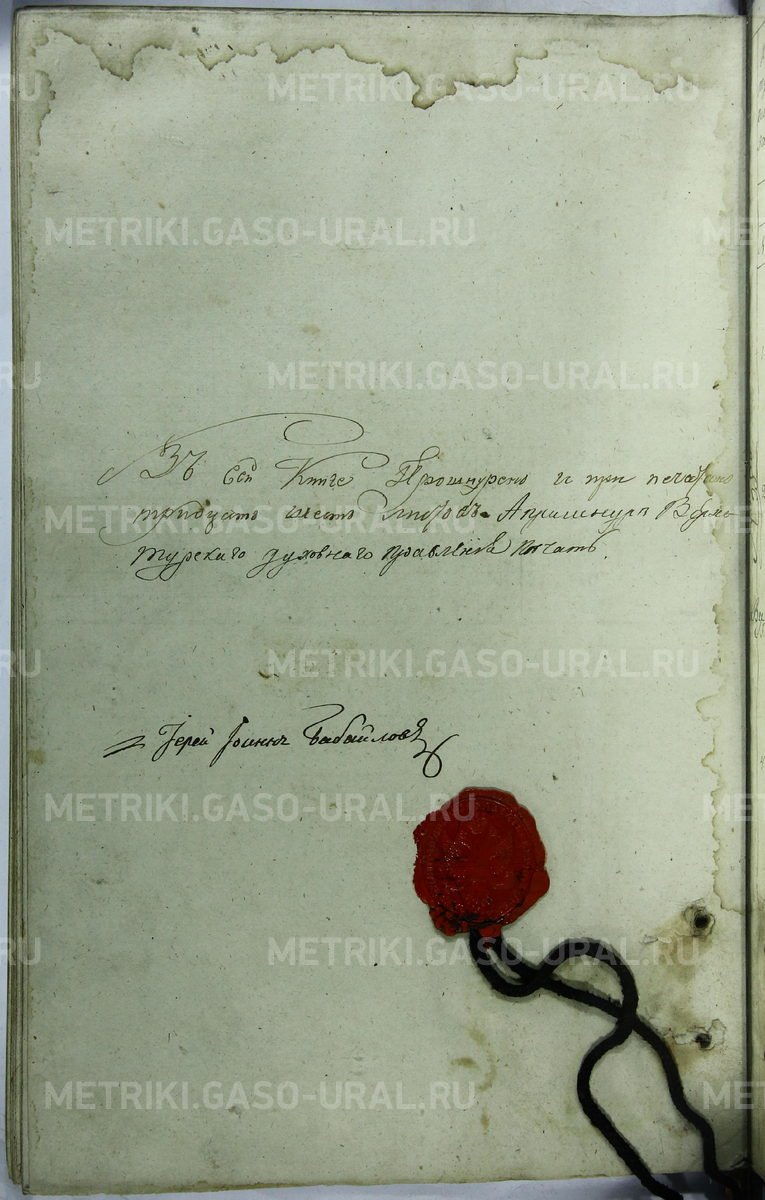 METRIKI.GASO-URAL.RU
METRIKI.GASO-URAL.RU
METRIKI.GASO-URAL.RU
Въ сей Книге Прошнурено и при печатано
тридцать шесть листовъ
турскаго духовнаго правленія Печать.
METRIKI.GASO-URAL.RU
METRIKI.GASO-URAL.RU
Іерей Іоаннъ Бабайловъ
METRIKI.GASO-URAL.RU
METRIKI.GASO-URAL.RU
METRIKI.GASO-URAL.RU